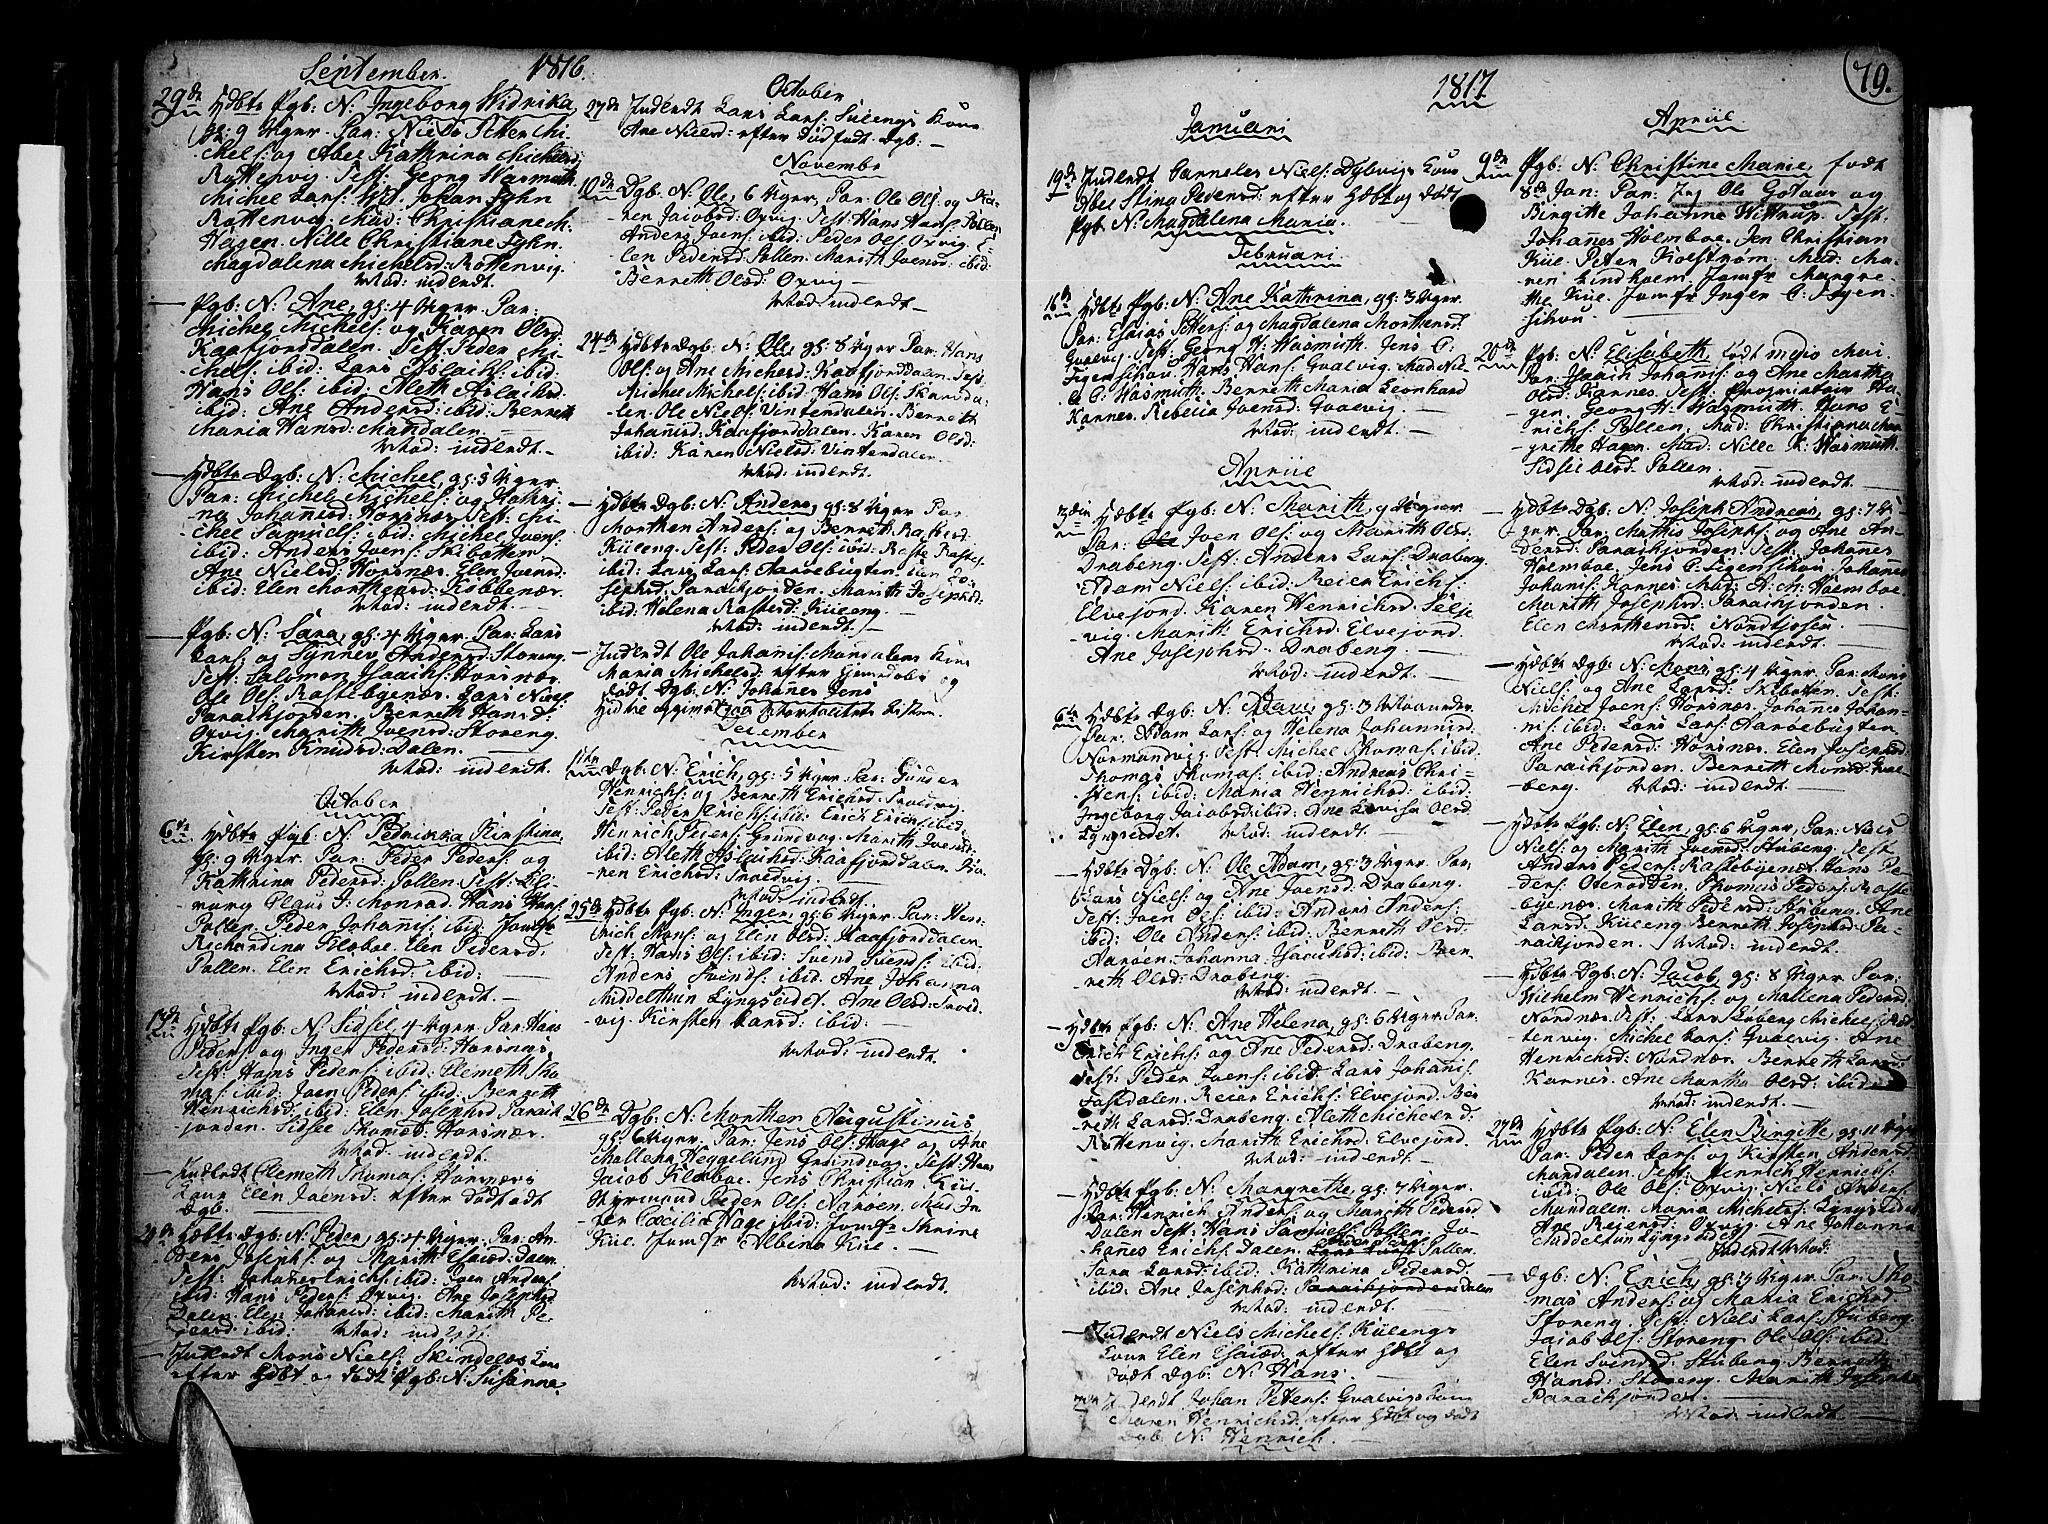 September. 1816.
29de Hdbte Pgb: N: Ingeborg Hidrika,
gs: 9 Uger. Par: Niels Petter Mi-
chels: og Abel Kathrina Michelsd:
Rottenvig. Test: Georg Wasmuth
Michel Lars: ibid. Johan Fyhn
Rottenvig. Mad: Christiane
Hagen. Nille Christiane Fyhn.
Magdalena Michelsd: Rottenvig.
Mod: indledt.
— Pgb: N: Ane, gs: 4 Uger. Par:
Michel Michels: og Karen Olsd:
Kaafjorddalen. Test: Peder Mi-
chels: ibid: Lars Aslachs: ibid:
Hans Ols: ibid: Aleth Aslachsd:
ibid: Ane Andersd: ibid: Berreth
Maria Hansd: Mandalen.
Mod: indledt. —
— Hdbte Dgb: N: Michel, gs: 5 Uger
Par: Michel Michels: og Cathri-
na Johannsd: Horsnæs. Test: Mi-
chel Samuels: ibid: Michel Joens:
ibid: Anders Joens: Skibotten
Ane Nielsd: Horsnæs. Elen Joensd:
ibid: Elen Morthensd: Kobbenær.
Mod: indledt. —
— Pgb: N: Sara, gs: 4 Uger. Par: Lars
Lars: og Synnev Andersd: Storeng.
Test: Salomon Isaachs: Horsnæs.
Ole Ols: Rastebynæs. Lars Niels:
Paraskjorden. Berreth Hansd:
Oxvig. Marith Joensd: Storeng.
Kirsten Knudsd: Dalen. —
Mod: indledt.
October
6te Hdbte Pgb: N: Pedrikka Kirstina
gs: 9 Uger. Par: Peder Peders: og
Kathrina Pedersd: Pollen. Test:
Claus J: Monrad. Hans Hans:
Pollen. Peder Johanns: ibid: Jomfr
Richardina Kilboe. Elen Pedersd:
Pollen. Elen Erichsd: ibid: —
Mod: indledt. —
13de Hdbte Pgb: N: Sidsel, 4 Uger. Par: Hans
Peders: og Inger Pedersd: Horsnæs
Test: Hans Peders: ibid: Clemeth Tho-
mas: ibid: Joen Peders: ibid: Berreth
Henrichsd: ibid: Elen Josephsd: Parask-
jorden. Sidsel Thomasd: Horsnær.
Mod: indledt.
— Indledt Clemeth Thomas: Horsnæs
Kone Elen Joensd: efter Dødfødt
Dgb.
20de Hdbte Dgb: N: Peder, gs: 4 Uger. Par: An-
ders Josephs: og Marith Esaisd: Dalen.
Test: Johannes Erichs: ibid: Joen Anders:
ibid: Hans Peders: Oxvig. Ane Josephsd:
Dalen. Elen Johansd: ibid: Marith Pe-
dersd: ibid: Mod: indledt.
— Indledt Mons Niels: Skindelas Kone
efter Hdbt og dødt Pgb: N: Susanne.
October
27de Indledt Lars Lars: Sulengs Kone
Ane Nielsd: efter Dødfødt Dgb: —
Novembr
10de Dgb: N: Ole, 6 Uger, Par: Ole Ols: og Ka-
ren Jacobsd: Oxvig. Test: Hans Hans: Pollen
Anders Joens: ibid: Peder Ols: Oxvig. E-
len Pedersd: Pollen. Marith Joensd: ibid:
Berreth Olsd: Oxvig —
Mod: indledt —
24de Hdbte Dgb: N: Ole, gs: 8 Uger Par: Hans
Ols: og Ane Michelsd: Kaafjorddalen. Test:
Michel Michels: ibid: Hans Ols: Skarda-
len. Ole Niels: Vinterdalen. Berreth
Johannsd: Kaafjorddalen. Karen Olsd:
ibid: Karen Nielsd: Vinterdalen.
Mod: indledt.
— Hdbte Dgb: N: Anders, gs: 8 Uger Par
Morthen Anders: og Berreth Rastesd:
Kileng. Test: Peder Ols: ibid: Raste Rastes:
ibid: Lars Lars: Aaroebugten. Elen Jo-
sephsd: Paraskjorden. Marith Josephsd:
ibid: Helena Rastesd: Kileng. —
Mod: indledt. —
— Indledt Ole Johanns: Mandalens Kone
Maria Michelsd: efter Hjemdøbt og
dødt Dgb: N: Johannes Jens
hidtil opgivet paa Mortalitets Listen.
December
15de Dgb: N: Erich, gs: 5 Uger. Par: Gunder
Henrichs: og Berreth Erichsd: Traldvig.
Test: Peder Erichs: ibid: Erich Erichs: ibid:
Henrich Peders: Grundvog. Marith Joensd:
ibid: Aleth Aslachsd: Kaafjorddalen. Ka-
ren Erichsd: Traldvig.
Mod: indledt. —
25de Hdbte Pgb: N: Inger, gs: 6 Uger. Par: Hen-
rich Mons: og Elen Olsd: Kaafjorddalen.
Test: Hans Ols: ibid: Svend Svends: ibid:
Anders Svends: ibid: Ane Johanna
Middelthun Lyngseidet. Ane Olsd: Trold-
vig. Kirsten Larsd: ibid: —
Mod: indledt.
26de Dgb: N: Morthen Augustinus,
gs: 6 Uger. Par: Jens Ols: Hage og Ane
Mallena Heggelund Grundvog. Test: Hans
Jacob Kilboe. Jens Christian Kiil.
Nyemand Peder Ols: Narøen. Mad: In-
ger Cecilia Hage ibid: Jomfr Thrine
Kiil. Jomfr Albina Kiil. —
Mod: indledt.
1817. 79.
Januari
19de Indledt Cornelus Niels: Dybvigs Kone
Abel Stina Pedersd: efter Hdbt og dødt
Pgb: N: Magdalena Maria.
Februari.
16de Hdbte Pgb: N: Ane Kathrina, gs: 3 Uger.
Par: Esaias Petters: og Magdalena Morthensd:
Gvalvig. Test: Georg H: Wasmuth. Jens C:
Figenschou. Hans Hans: Gvalvig. Mad: Nil-
le C: Wasmuth. Berreth Maria Leonhard
Karnes. Rebecca Joensd: Gvalvig. —
Mod: indledt.
Apriil
3die Hdbte Pgb: N: Marith, 9 Uger.
Par: Joen Ols: og Marith Olsd:
Drabeng. Test: Anders Lars: Drabeng.
Adam Niels: ibid: Reier Erichs:
Elvejord. Karen Henrichsd: Selje
-vig. Marith Erichsd: Elvejord.
Ane Josephsd: Drabeng. —
Mod: indledt. —
6te Hdbte Dgb: N: Claus, gs: 3 Maaneder.
Par: Adam Lars: og Helena Johannsd:
Normandvig. Test: Michel Thomas: ibid:
Thomas Thomas: ibid: Andreas Chri-
stens: ibid: Maria Henrichsd: ibid:
Ingeborg Jacobsd: ibid: Ane Lovisa Olsd:
Lyngseidet. Mod: indledt. —
— Hdbte Dgb: N: Ole Adam, gs: 3 Uger. Par:
Lars Niels: og Ane Joensd: Drabeng.
Test: Joen Ols: ibid: Anders Anders:
ibid: Ole Anders: ibid: Berreth Olsd:
Aaroen. Johanna Isachsd: ibid: Ber-
reth Olsd: Drabeng. —
Mod: indledt. —
— Hdbte Pgb: N: Ane Helena, gs: 6 Uger. Par:
Erich Erichs: og Ane Pedersd: Drabeng.
Test: Peder Joens: ibid: Lars Johanns:
Fastdalen. Reier Erichs: Elvejord. Ber
reth Larsd: Drabeng. Aleth Michelsd:
Rottenvig. Marith Erichsd: Elvejord.
Mod: indledt. —
— Hdbte Pgb: N: Margrethe, gs: 7 Uger.
Par: Henrich Anders: og Mareth Pedersd:
Dalen. Test: Hans Samuels: Pollen. Jo-
hannes Erichs: Dalen. Pollen.
Sara Larsd: ibid: Kathrina Pedersd:
ibid: Ane Josephsd: Paraskjorden Dalen
Mod: indledt —
— Indledt Niels Michels: Kilengs
Kone Elen Esaisd: efter Hdbt og
dødt Dgb: N: Hans.
Indledt Johan Peters: Gvalvigs Kone
Maren Henrichsd: efter Hdbt og dødt
Dgb: N: Henrich. —
Apriil.
9de Pgb: N: Christine Marie, født
8de Jan: Par: Jeg Ole Gotaas og
Birgitte Johanne Wittrup. Test:
Johannes Holmboe. Jen Christian
Kiil. Peter Kolstrøm. Mad: Ma-
ren Lindholm. Jomfr Margre-
the Kiil. Jomfr Inger C: Figen-
schou.
20de Pgb: N: Elisabeth, født medio Mai
Par: Isach Johanns: og Ane Martha
Olsd: Karnes. Test: Proprietair Ha-
gen. Georg H: Wasmuth. Hans E-
richs: Pollen. Mad: Christianna Mar-
grethe Hagen. Mad: Nille K: Wasmuth.
Sidsel Olsd: Pollen. —
Mod: indledt. —
— Hdbte Dgb: N: Joseph Andreas, gs: 7 U-
ger. Par: Mathis Josephs: og Ane An-
dersd: Paraskjorden. Test: Johannes
Holmboe. Jens C: Figenschou. Johannes
Johanns: Karnes. Mad: A: M: Holmboe.
Marith Josephsd: Paraskjorden.
Elen Morthensd: Nordkjosen.
Mod: indledt. —
— Hdbte Dgb: N: Mons, gs: 4 Uger. Par: Mons
Niels: og Ane Larsd: Skibotten. Test:
Michel Joens: Horsnæs. Johannes Johan-
ns: ibid: Lars Lars: Aarøebugten.
Ane Pedersd: Horsnæs. Elen Josephsd:
Paraskjorden. Berreth Monsd: Gval-
berg. Mod: indledt. —
— Hdbte Pgb: N: Elen, gs: 6 Uger, Par: Niels
Niels: og Marith Joensd: Stuberg. Test
Anders Peders: Rastebynæs. Hans Pe-
ders: Oderodden. Thomas Peders: Raste-
bynæs. Marith Pedersd: Stuberg. Ane
Larsd: Kileng. Berreth Josephsd: Pa-
raskjorden. Mod: indledt.
— Hdbte Dgb: N: Jacob, gs: 8 Uger. Par:
Wilhelm Henrichs: og Mallena Pedersd:
Nordnæs. Test: Lars Loberg Michels: Rot-
tenvig. Michel Lars: Gvalvig. Ane
Henrichsd: Nordnær. Berreth Larsd:
Karnes. Ane Martha Olsd: ibid:
Mod: indledt. —
27de Hdbte Pgb: N: Elen Birgitte, gs: 11 Uger
Par: Peder Lars: og Kirsten Andersd:
Mandalen. Test: Henrich Henrichs:
ibid: Ole Ols: Oxvig. Niels Anders:
Mandalen. Maria Michels: Lyngseidet
Ane Reiersd: Oxvig. Ane Johanna
Middeltun Lyngseidet.
Indledt Mod:
— Dgb: N: Erich, gs: 3 Uger. Par: Tho-
mas Anders: og Maria Erichsd:
Storeng. Test: Niels Lars: Stuberg.
Jacob Ols: Storeng. Ole Ols: ibid:
Elen Svendsd: Stuberg. Berreth
Hansd: Storeng. Marith Josephsd:
Paraskjorden.
Mod: indledt. —